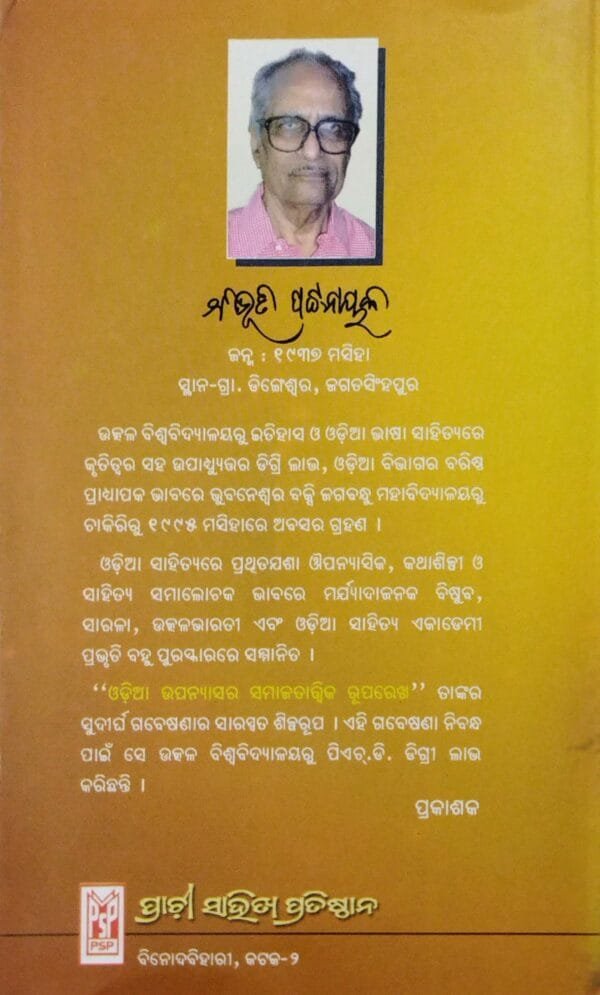 ବିଭୂତି ପଟ୍ଟନାୟକ
ଜନ୍ମ : ୧୯୩୭ ମସିହା
ସ୍ଥାନ-ଗ୍ରା. ଡିଙ୍ଗେଶ୍ୱର, ଜଗତସିଂହପୁର
ଉତ୍କଳ ବିଶ୍ୱବିଦ୍ୟାଳୟରୁ ଇତିହାସ ଓ ଓଡ଼ିଆ ଭାଷା ସାହିତ୍ୟରେ
କୃତିତ୍ୱର ସହ ଉପାଧ୍ୟୁତ୍ତର ଡିଗ୍ରି ଲାଭ, ଓଡ଼ିଆ ବିଭାଗର ବରିଷ୍ଠ
ପ୍ରାଧ୍ୟାପକ ଭାବରେ ଭୁବନେଶ୍ୱର ବକ୍ସି ଜଗବନ୍ଧୁ ମହାବିଦ୍ୟାଳୟରୁ
ଚାକିରିରୁ ୧୯୯୫ ମସିହାରେ ଅବସର ଗ୍ରହଣ ।
ଓଡ଼ିଆ ସାହିତ୍ୟରେ ପ୍ରଥିତଯଶା ଔପନ୍ୟାସିକ, କଥାଶିଳ୍ପୀ ଓ
ସାହିତ୍ୟ ସମାଲୋଚକ ଭାବରେ ମର୍ଯ୍ୟାଦାଜନକ ବିଷୁବ,
ସାରଳା, ଉତ୍କଳଭାରତୀ ଏବଂ ଓଡ଼ିଆ ସାହିତ୍ୟ ଏକାଡେମୀ
ପ୍ରଭୃତି ବହୁ ପୁରସ୍କାରରେ ସମ୍ମାନିତ ।
‘‘ଓଡ଼ିଆ ଉପନ୍ୟାସର ସମାଜତାତ୍ତ୍ୱିକ ରୂପରେଖ’’ ତାଙ୍କର
ସୁଦୀର୍ଘ ଗବେଷଣାର ସାରସ୍ୱତ ଶିଳ୍ପରୂପ । ଏହି ଗବେଷଣା ନିବନ୍ଧ
ପାଇଁ ସେ ଉତ୍କଳ ବିଶ୍ୱବିଦ୍ୟାଳୟରୁ ପିଏଚ୍.ଡି. ଡିଗ୍ରୀ ଲାଭ
କରିଛନ୍ତି ।
ପ୍ରକାଶକ
PSP
PSP
ପ୍ରାଚୀ ସାହିତ୍ୟ ପ୍ରତିଷ୍ଠାନ
ବିନୋଦବିହାରୀ, କଟକ-୨